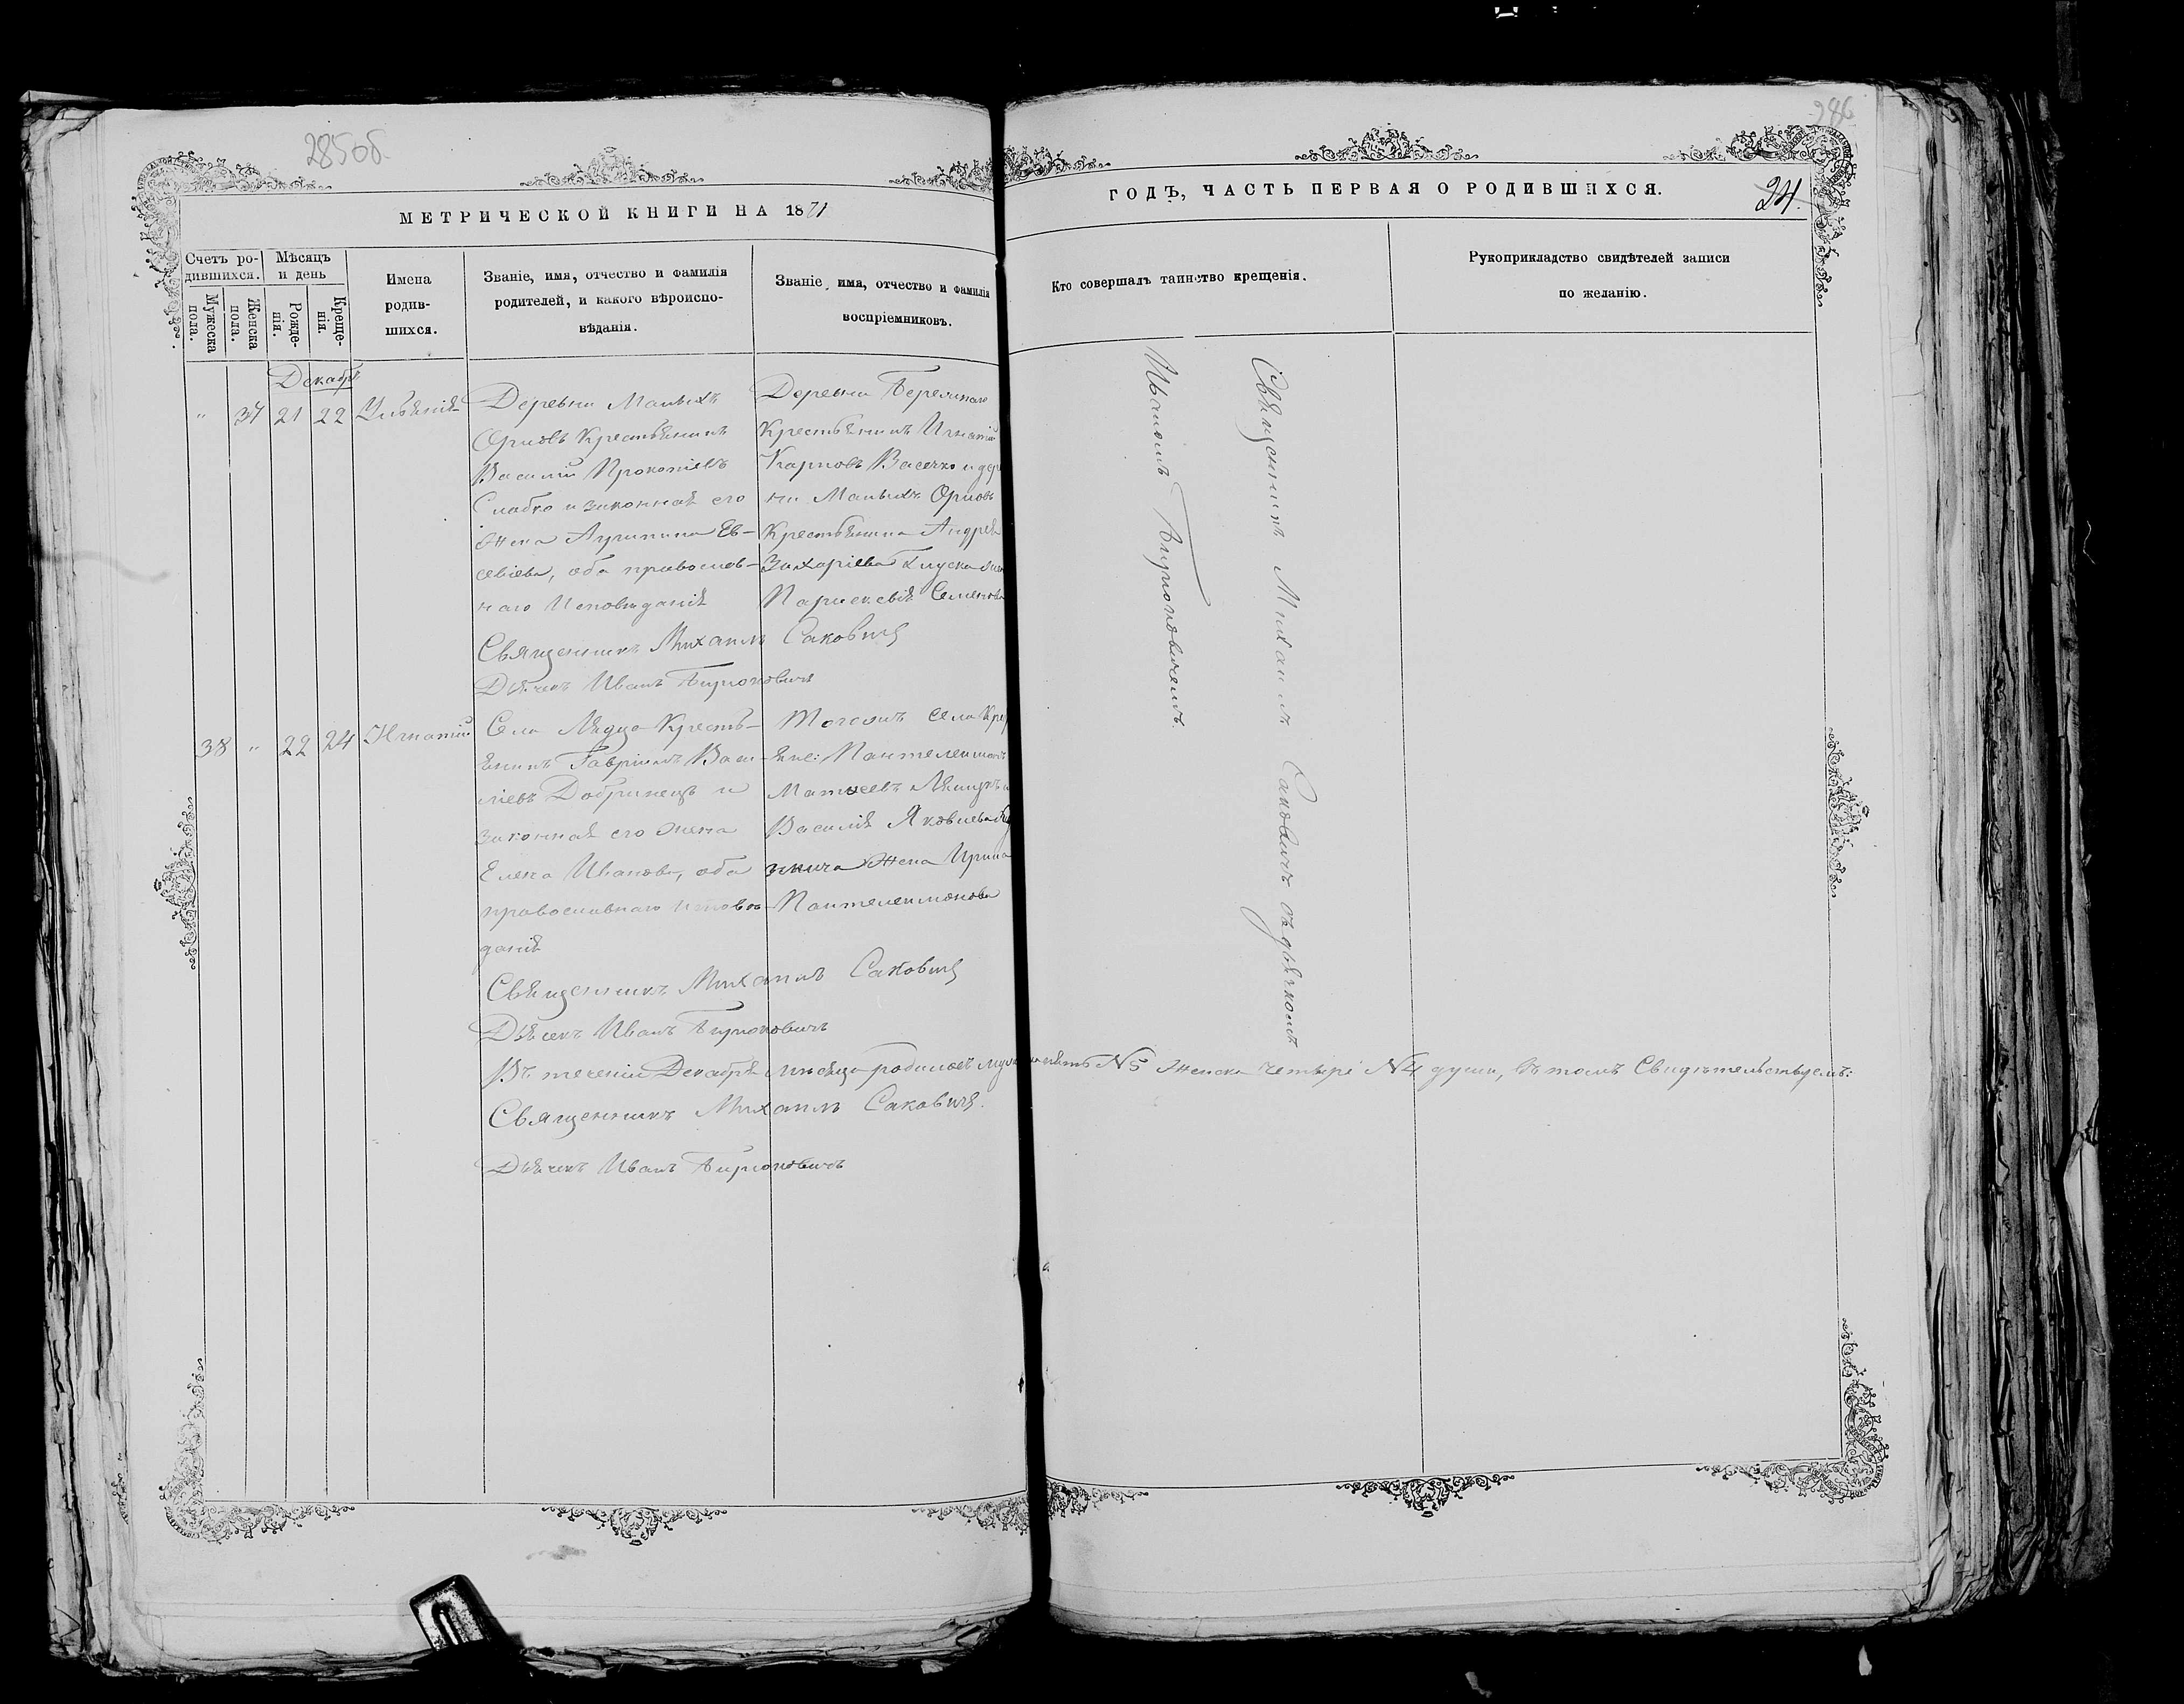 285об.
286
МЕТРИЧЕСКОЙ КНИГИ НА 1871
ГОДЪ, ЧАСТЬ ПЕРВАЯ О РОДИВШИХСЯ.
24.
Счетъ ро-
дившихся.
Мужеска
пола.
Женска
пола.
Мѣсяцъ
и день
Рожде-
нія.
Креще-
нія.
Имена
родив-
шихся.
Званіе, имя, отчество и фамилія
родителей, и какого вѣроиспо-
вѣданія.
Званіе, имя, отчество и фамилія
воспріемниковъ.
Кто совершалъ таинство крещенія.
Рукоприкладство свидѣтелей записи
по желанію.
Декабрь
" 37 21 22
Деревни Малыхъ
Орловъ Крестьянинъ
Василій Прокопіевъ
Слабко и законная его
жена Агрипина Ев-
сеіева, оба православ-
наго Исповѣданія
Деревни
Крестьянинъ Игнатій
Карповъ Васечко и дер
ни Малыхъ Орловъ
Крестьянина Андрея
Захаріева Глуска жена
Параскевія Семенова
Священникъ Михаилъ Саковичъ
Дьячекъ Иванъ
38 " 22 24 Игнатій
Села Лядца Кресть-
янинъ Гавріилъ Васи-
ліевъ Добринецъ и
законная его жена
Елена Иванова, оба
православнаго исповѣ-
данія
Тогожъ села Кре
яне: Пантелеимонъ
Матѳеевъ
Василія Яковлева
жена Ирина
Пантелеимонова
Священникъ Михаилъ Саковичъ
Дьячекъ Иванъ
Въ теченіи Декабря мѣсяца родилось муж пять №5 женска четыре №4 души, въ томъ Свидѣтельствуемъ:
Священникъ Михаилъ Саковичъ.
Дьячекъ Иванъ
Священникъ Михаилъ Саковичъ съ дьячкомъ
Иваномъ